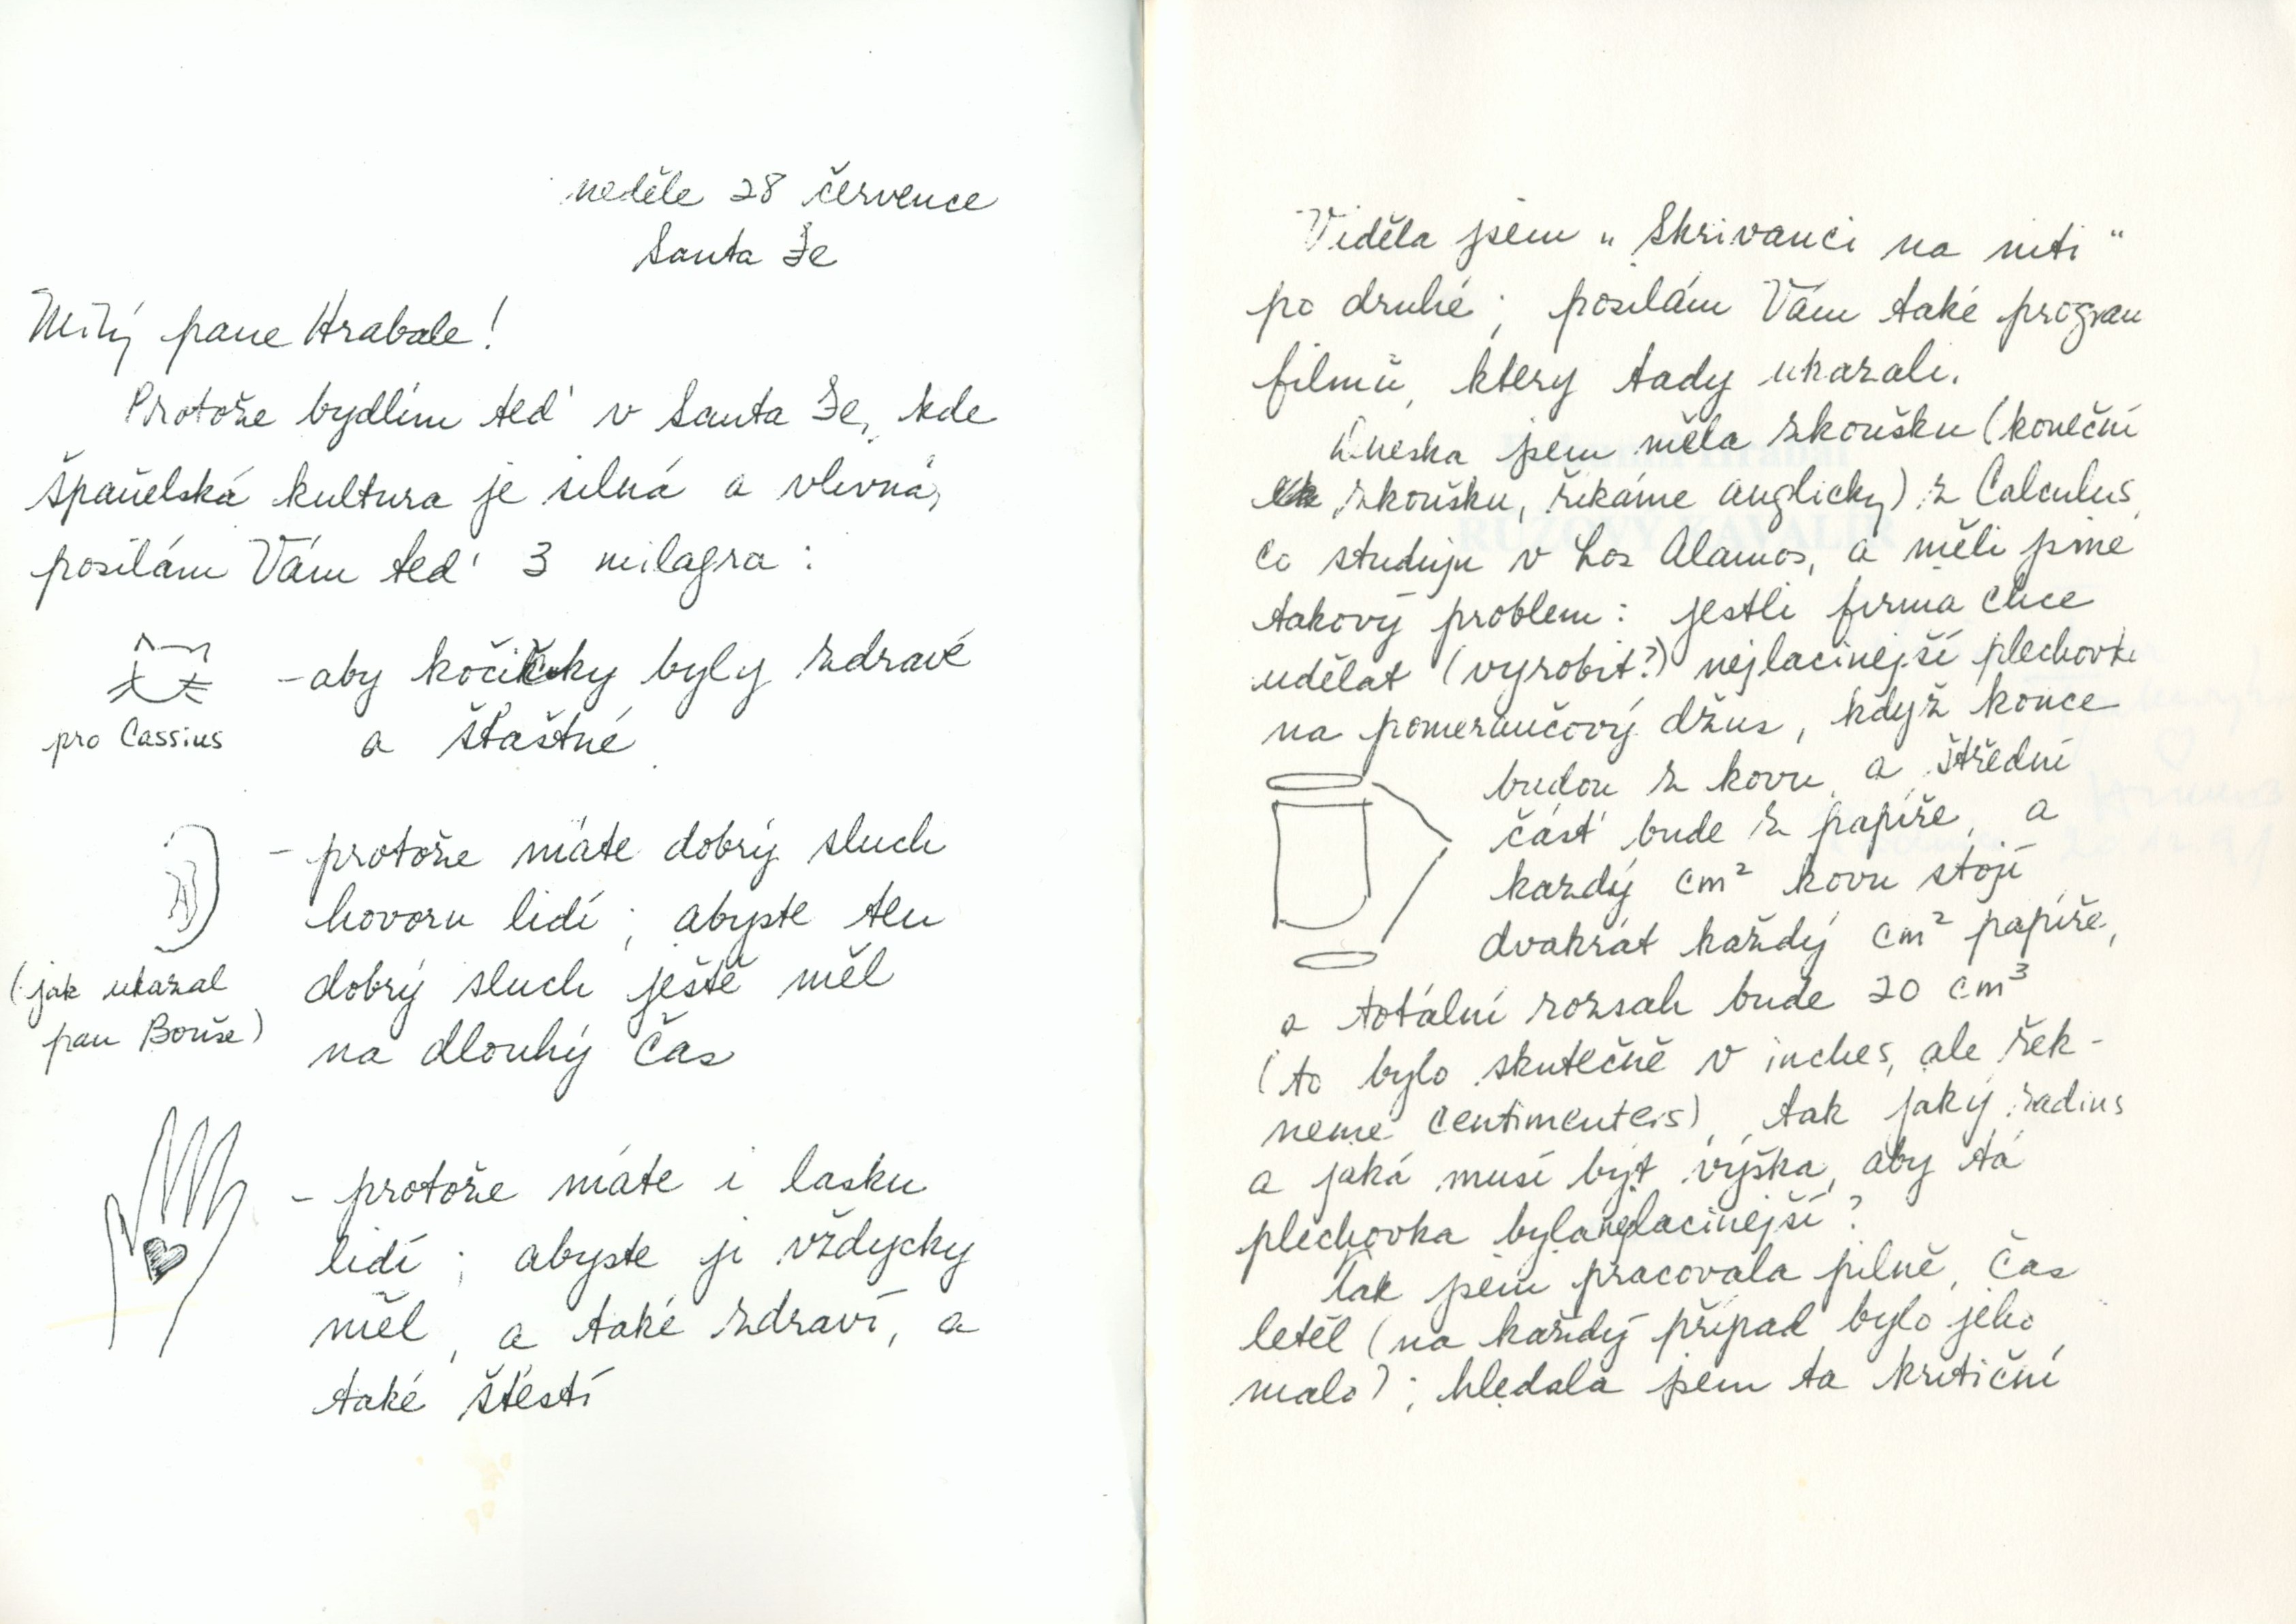 neděle 28 července
Santa Fe
Milý pane Hrabale!
Protože bydlím teď v Santa Fe, kde
španělská kultura je silná a vlivná,
posílám Vám teď 3 milagra:
- aby kočičky byly zdravé
a šťastné
pro Cassius
- protože máte dobrý sluch
hovoru lidí; abyste ten
dobrý sluch ještě měl
na dlouhý čas
(jak ukázal
pan Bouše)
- protože máte i lasku
lidí; abyste ji vždycky
měl, a také zdraví, a
také štěstí
Viděla jsem „Skrivanci na niti“
po druhé; posílám Vám také program
filmů, ktery tady ukazali.
Dneska jsem měla zkoušku (koneční
zkoušku, řikáme anglicky) z Calculus,
co studuju v Los Alamos, a měli jsme
takový problem: jestli firma chce
udělat (vyrobit?) nejlacinejší plechovku
na pomerančový džus, když konce
budou z kovu, a střední
část bude z papíře, a
kazdý cm² kovu stojí
dvakrát každý cm² papíře,
a totální rozsah bude 20 cm³
(to bylo skutečně v inches, ale řek-
neme centimenters), tak jaký radius
a jaká musí být výška, aby ta
plechovka byla nejlacinejší?
Tak jsem pracovala pilně, čas
letěl (na každý případ bylo jeho
malo); hledala jsem ta kritiční